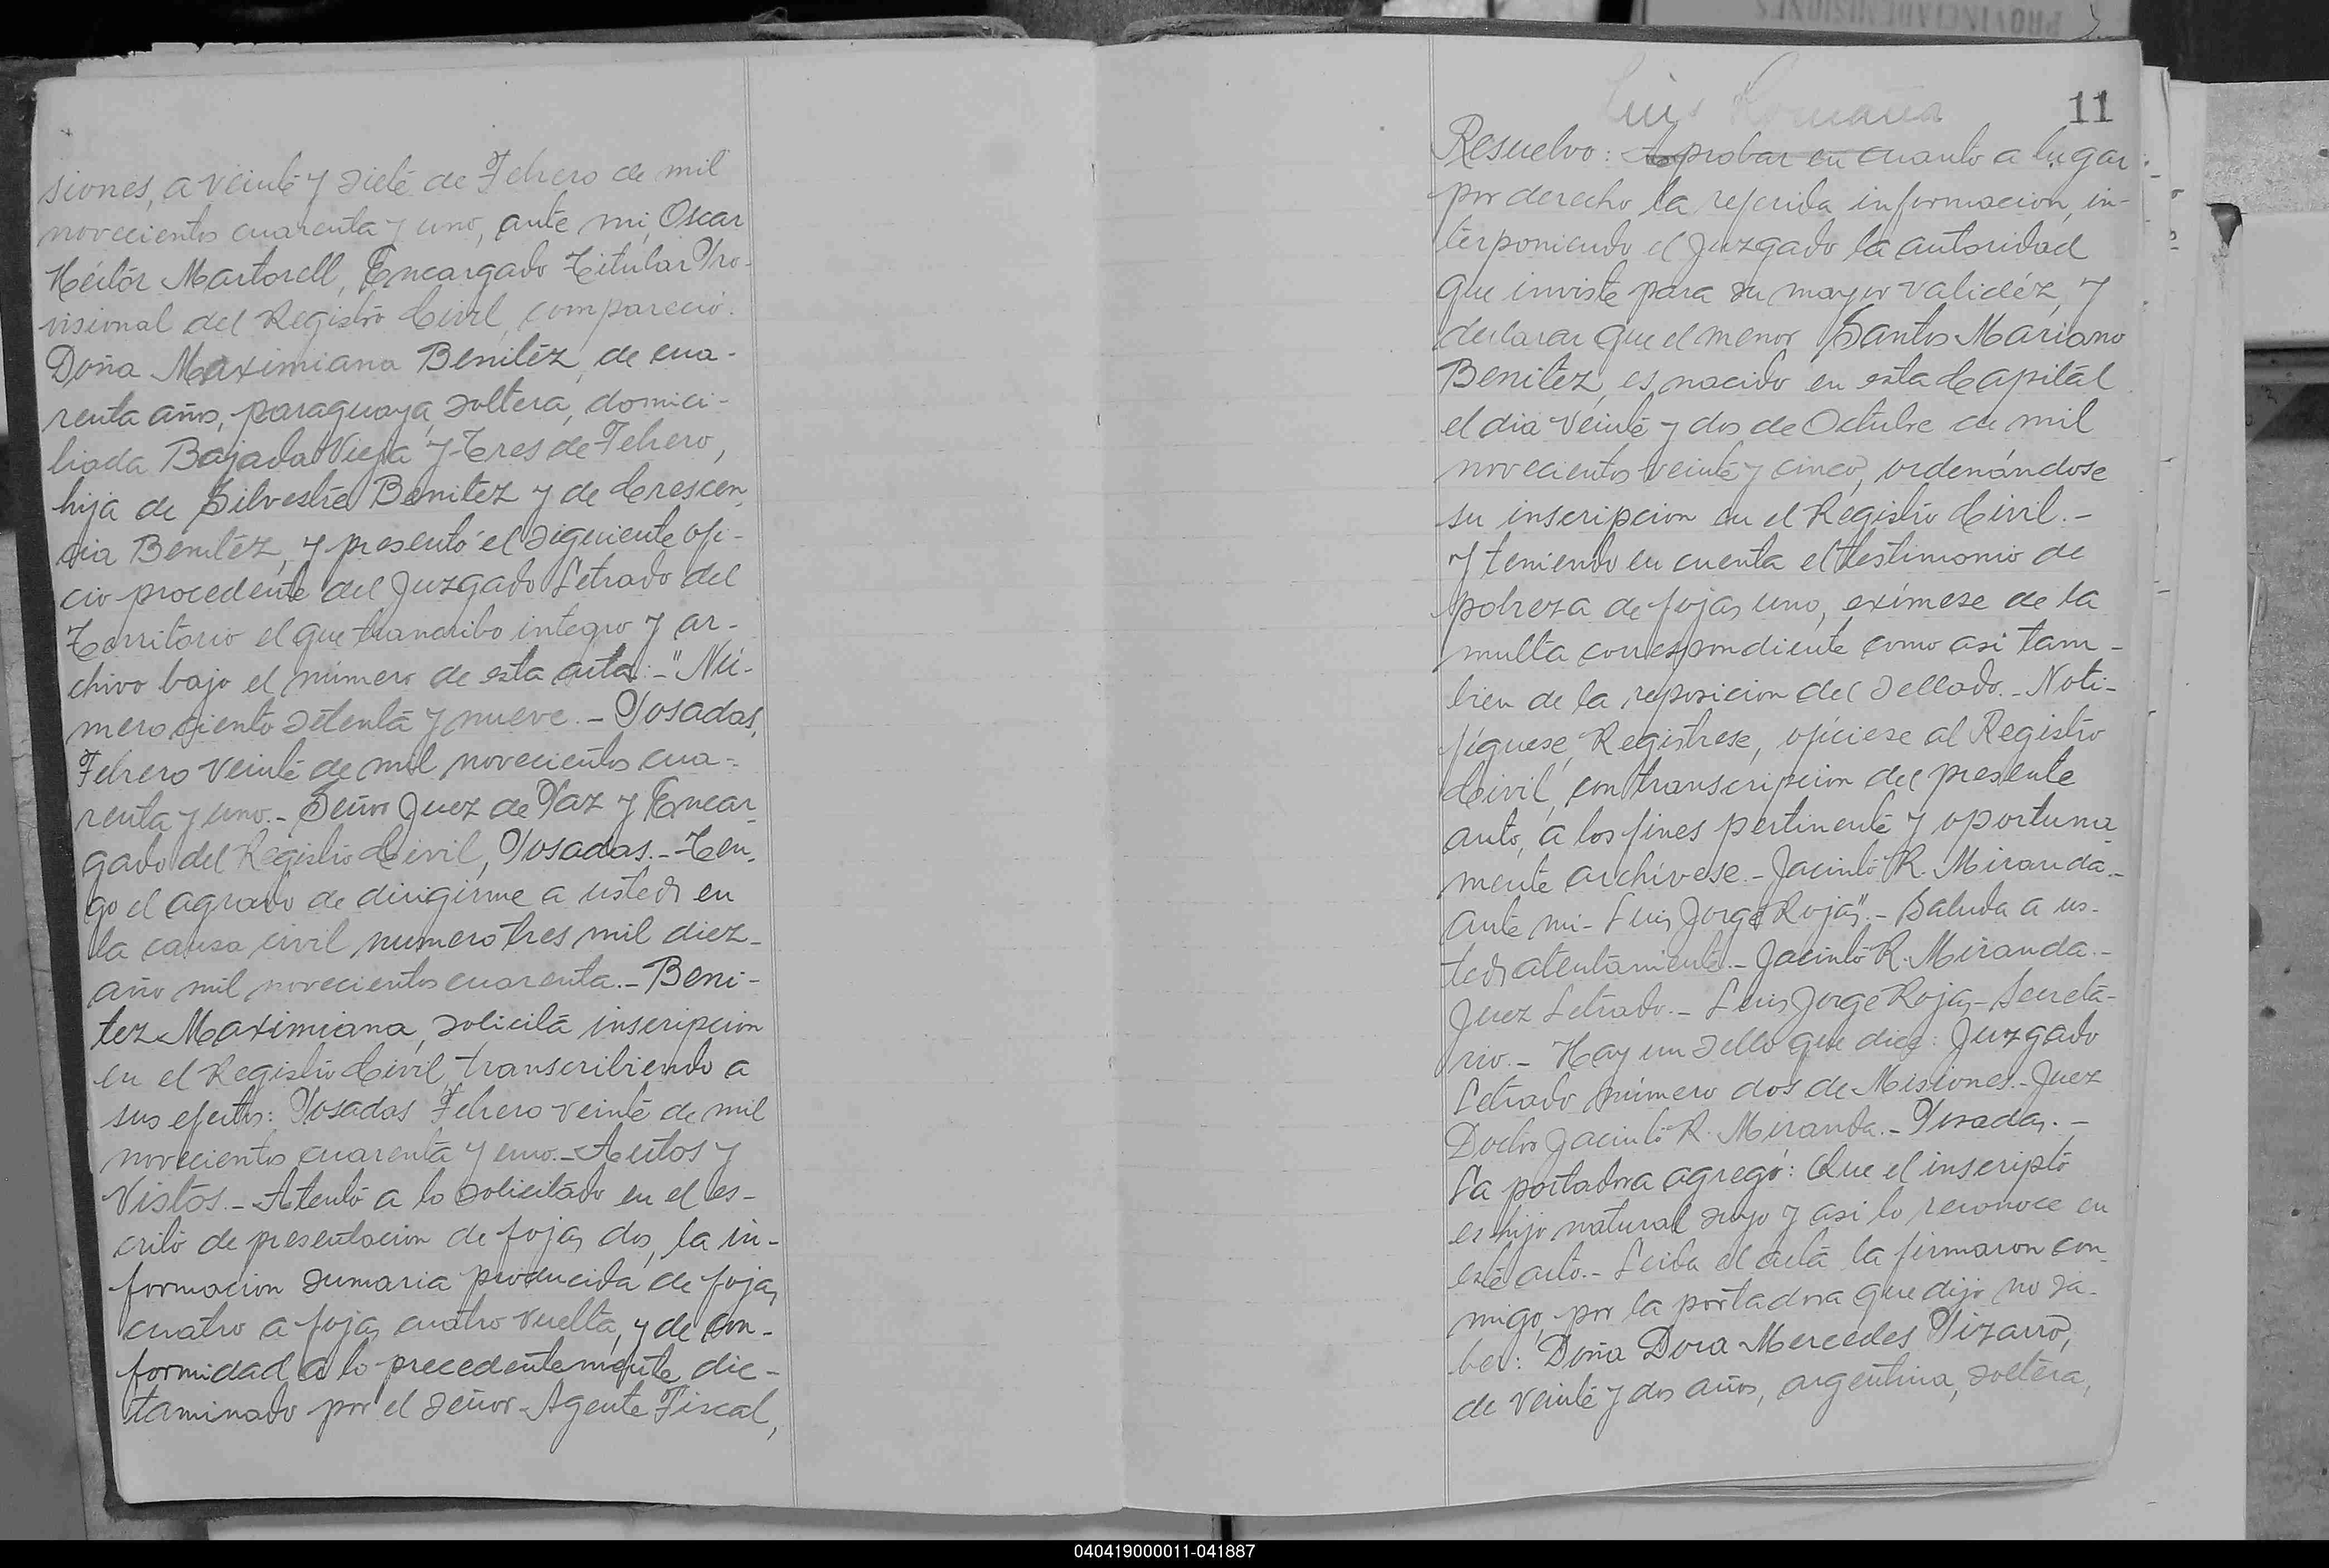 siones, a veinte y siete de Febrero de mil
novecientos cuarenta y uno, ante mi, Oscar
Héctor Martorell, Encargado Titular Pro-
visional del Registro Civil, compareció:
Doña Maximiana Benítez, de cua-
renta años, paraguaya, soltera, domici-
liada Bajada Vieja y Tres de Febrero,
hija de Silvestre Benitez y de Crescen-
cia Benítez, y presentó el siguiente ofi-
cio procedente del Juzgado Letrado del
Territorio el que transcribo integro y ar-
chivo bajo el número de esta acta:- "Nú-
mero ciento setenta y nueve.- Posadas,
Febrero veinte de mil novecientos cua-
renta y uno.- Señor Juez de Paz y Encar-
gado del Registro Civil, Posadas.- Ten-
go el agrado de dirigirme a usted en
la causa civil numero tres mil diez-
año mil novecientos cuarenta.- Beni-
tez Maximiana, solicita inscripcion
en el Registro Civil, transcribiendo a
sus efectos: Posadas Febrero veinte de mil
novecientos cuarenta y uno.- Autos y
Vistos.- Atento a lo solicitado en el es-
crito de presentacion de fojas dos, la in-
formacion sumaria producida de fojas
cuatro a fojas cuatro vuelta, y de con-
formidad a lo precedentemente dic-
taminado por el señor Agente Fiscal,
PROVINCIA DE MISIONES
Luis Romaña
11
Resuelvo: Aprobar en cuanto a lugar
por derecho la referida informacion, in-
terponiendo el Juzgado la autoridad
que inviste para su mayor validéz, y
declarar que el menor Santos Mariano
Benitez, es nacido en esta Capital
el dia veinte y dos de Octubre de mil
novecientos veinte y cinco, ordenándose
su inscripcion en el Registro Civil.-
Y teniendo en cuenta el testimonio de
pobreza de fojas uno, exímese de la
multa correspondiente como asi tam-
bien de la reposicion del sellado.- Noti-
fíquese, Registrese, ofíciese al Registro
Civil, con transcripcion del presente
auto, a los fines pertinente y oportuna-
mente archívese.- Jacinto R. Miranda.-
Ante mi- Luis Jorge Rojas".- Saluda a us-
ted atentamente.- Jacinto R. Miranda.-
Juez Letrado.- Luis Jorge Rojas- Secreta-
rio.- Hay un sello que dice: Juzgado
Letrado número dos de Misiones.- Juez
Doctor Jacinto R. Miranda.- Posadas.-
La portadora agregó: Que el inscripto
es hijo natural suyo y asi lo reconoce en
este acto.- Leida el acta la firmaron con-
migo, por la portadora que dijo no sa-
ber: Doña Dora Mercedes Pizarro,
de veinte y dos años, argentina, soltera,
040419000011-041887